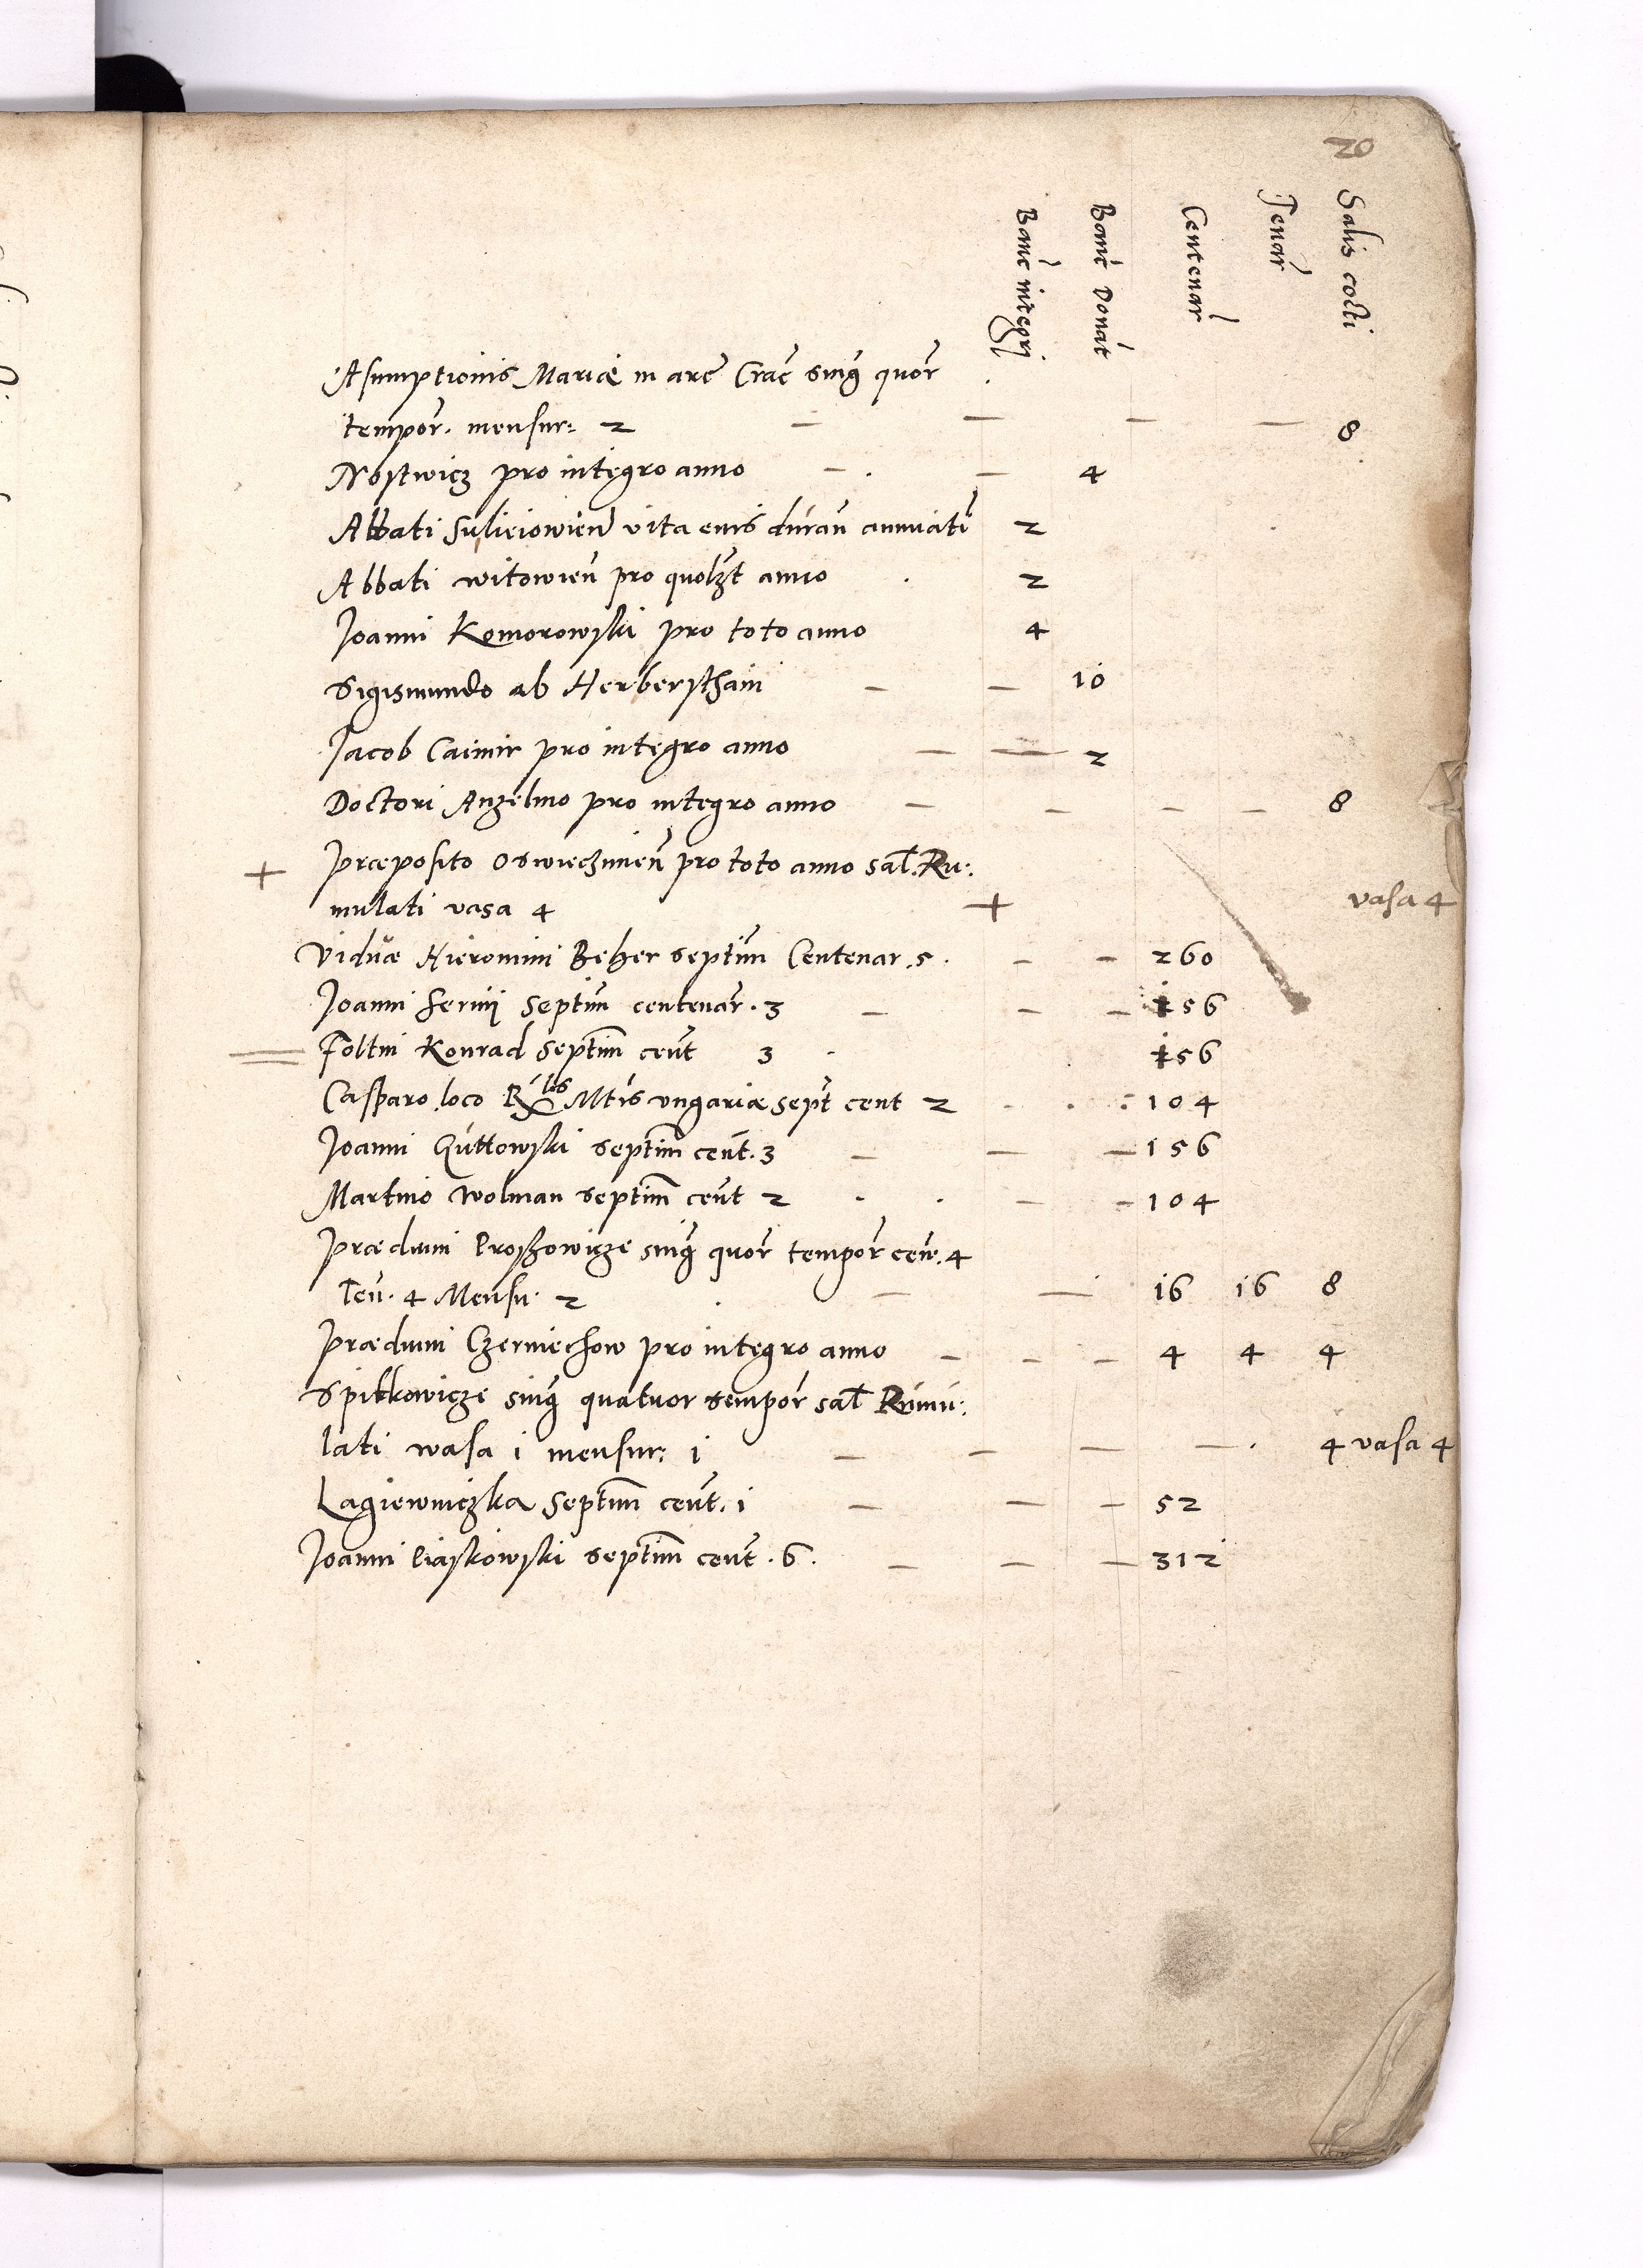 20
Banc integri
Banc Donat
Centenar
Tenar
Salis cocti
Asumptionis Mariæ in arc Crac sing quor
tempor. mensur: 2 — — — — 8
Nostwicz pro integro anno — . — 4
Abbati Suliciowien vita eius duran annuati 2
Abbati witowien pro quolzt anno . 2
Joanni Komorowski pro toto anno 4
Sigismundo ab Herbersthain — — 10
Jacob Caimir pro integro anno — — 2
Doctori Anzelmo pro integro anno — — — — 8
+ Præposito Oswieczimen pro toto anno sal. Ru:
mulati vasa 4 + vasa 4
Viduæ Hieronimi Beher septim Centenar. 5. — — 260
Joanni ferrij Septim centenar. 3 — — — 156
Foltin Konrad Septim cent 3 . 156
Casparo loco Rlis Mtis ungariæ sept cent 2 . . : 104
Joanni Guttowski septim cent. 3 — — — 156
Martino Wolman septim cent 2 . . — — 104
Prædium Proszowicze sing quor tempor cen. 4
Ten. 4 Mensu. 2 . — — 16 16 8
Prædium Czerniechow pro integro anno — — — 4 4 4
Spitkowicze sing quatuor tempor sal Rumu:
lati wasa i mensur: i — — — — . 4 vasa 4
Lagiewniczka Septim cent. i — — — 52
Joanni Piaskowski septim cent. 6. — — — 312